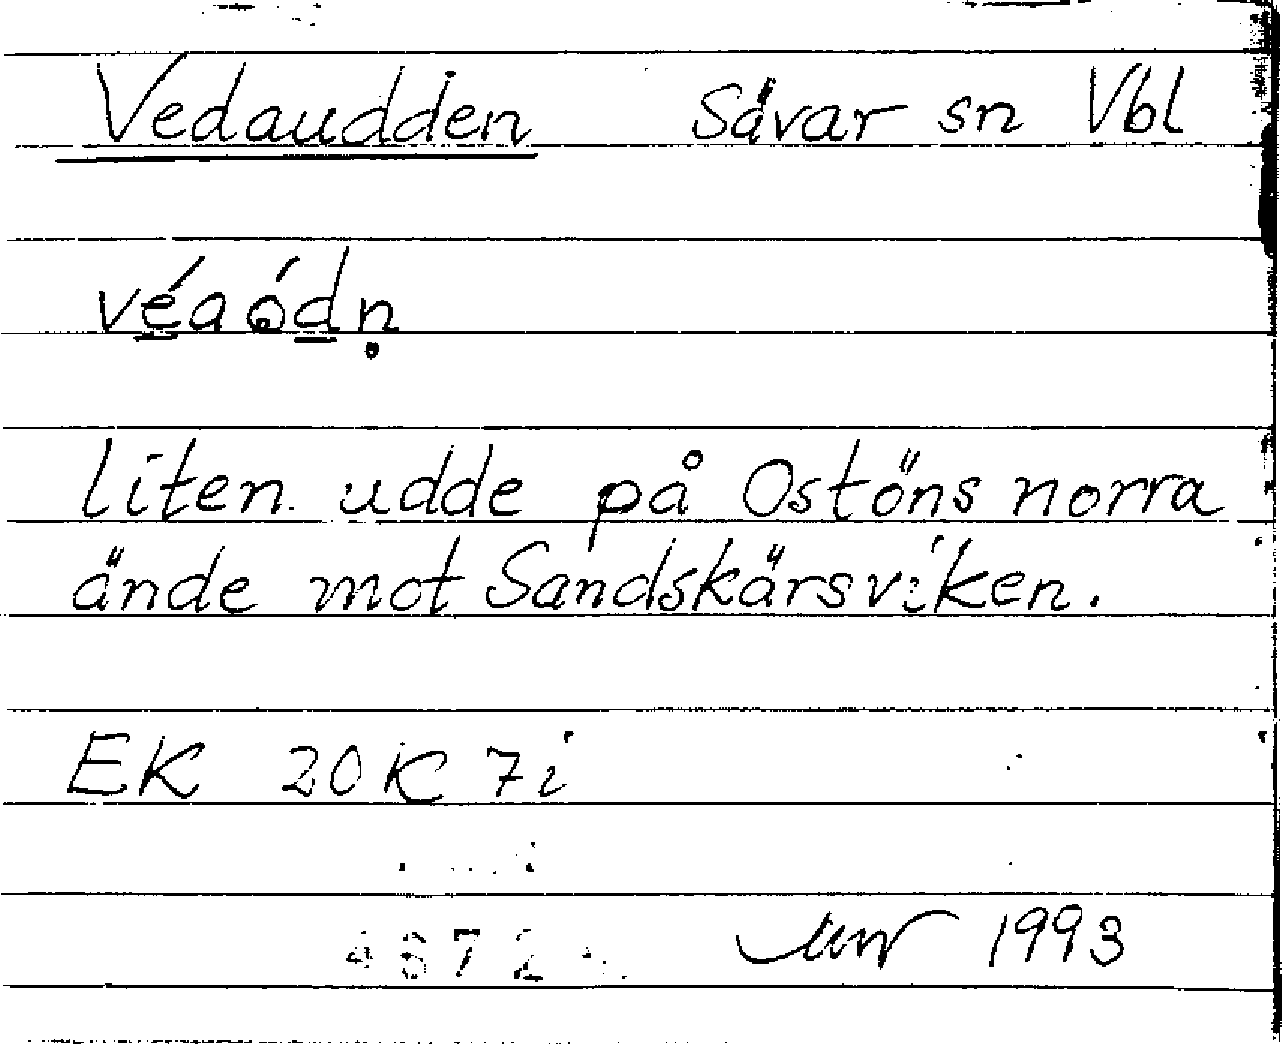 Vedaudden Sävar sn Vbl
véaódn̥
liten udde på Ostöns norra
ände mot Sandskärsviken.
EK 20K 7i
1993